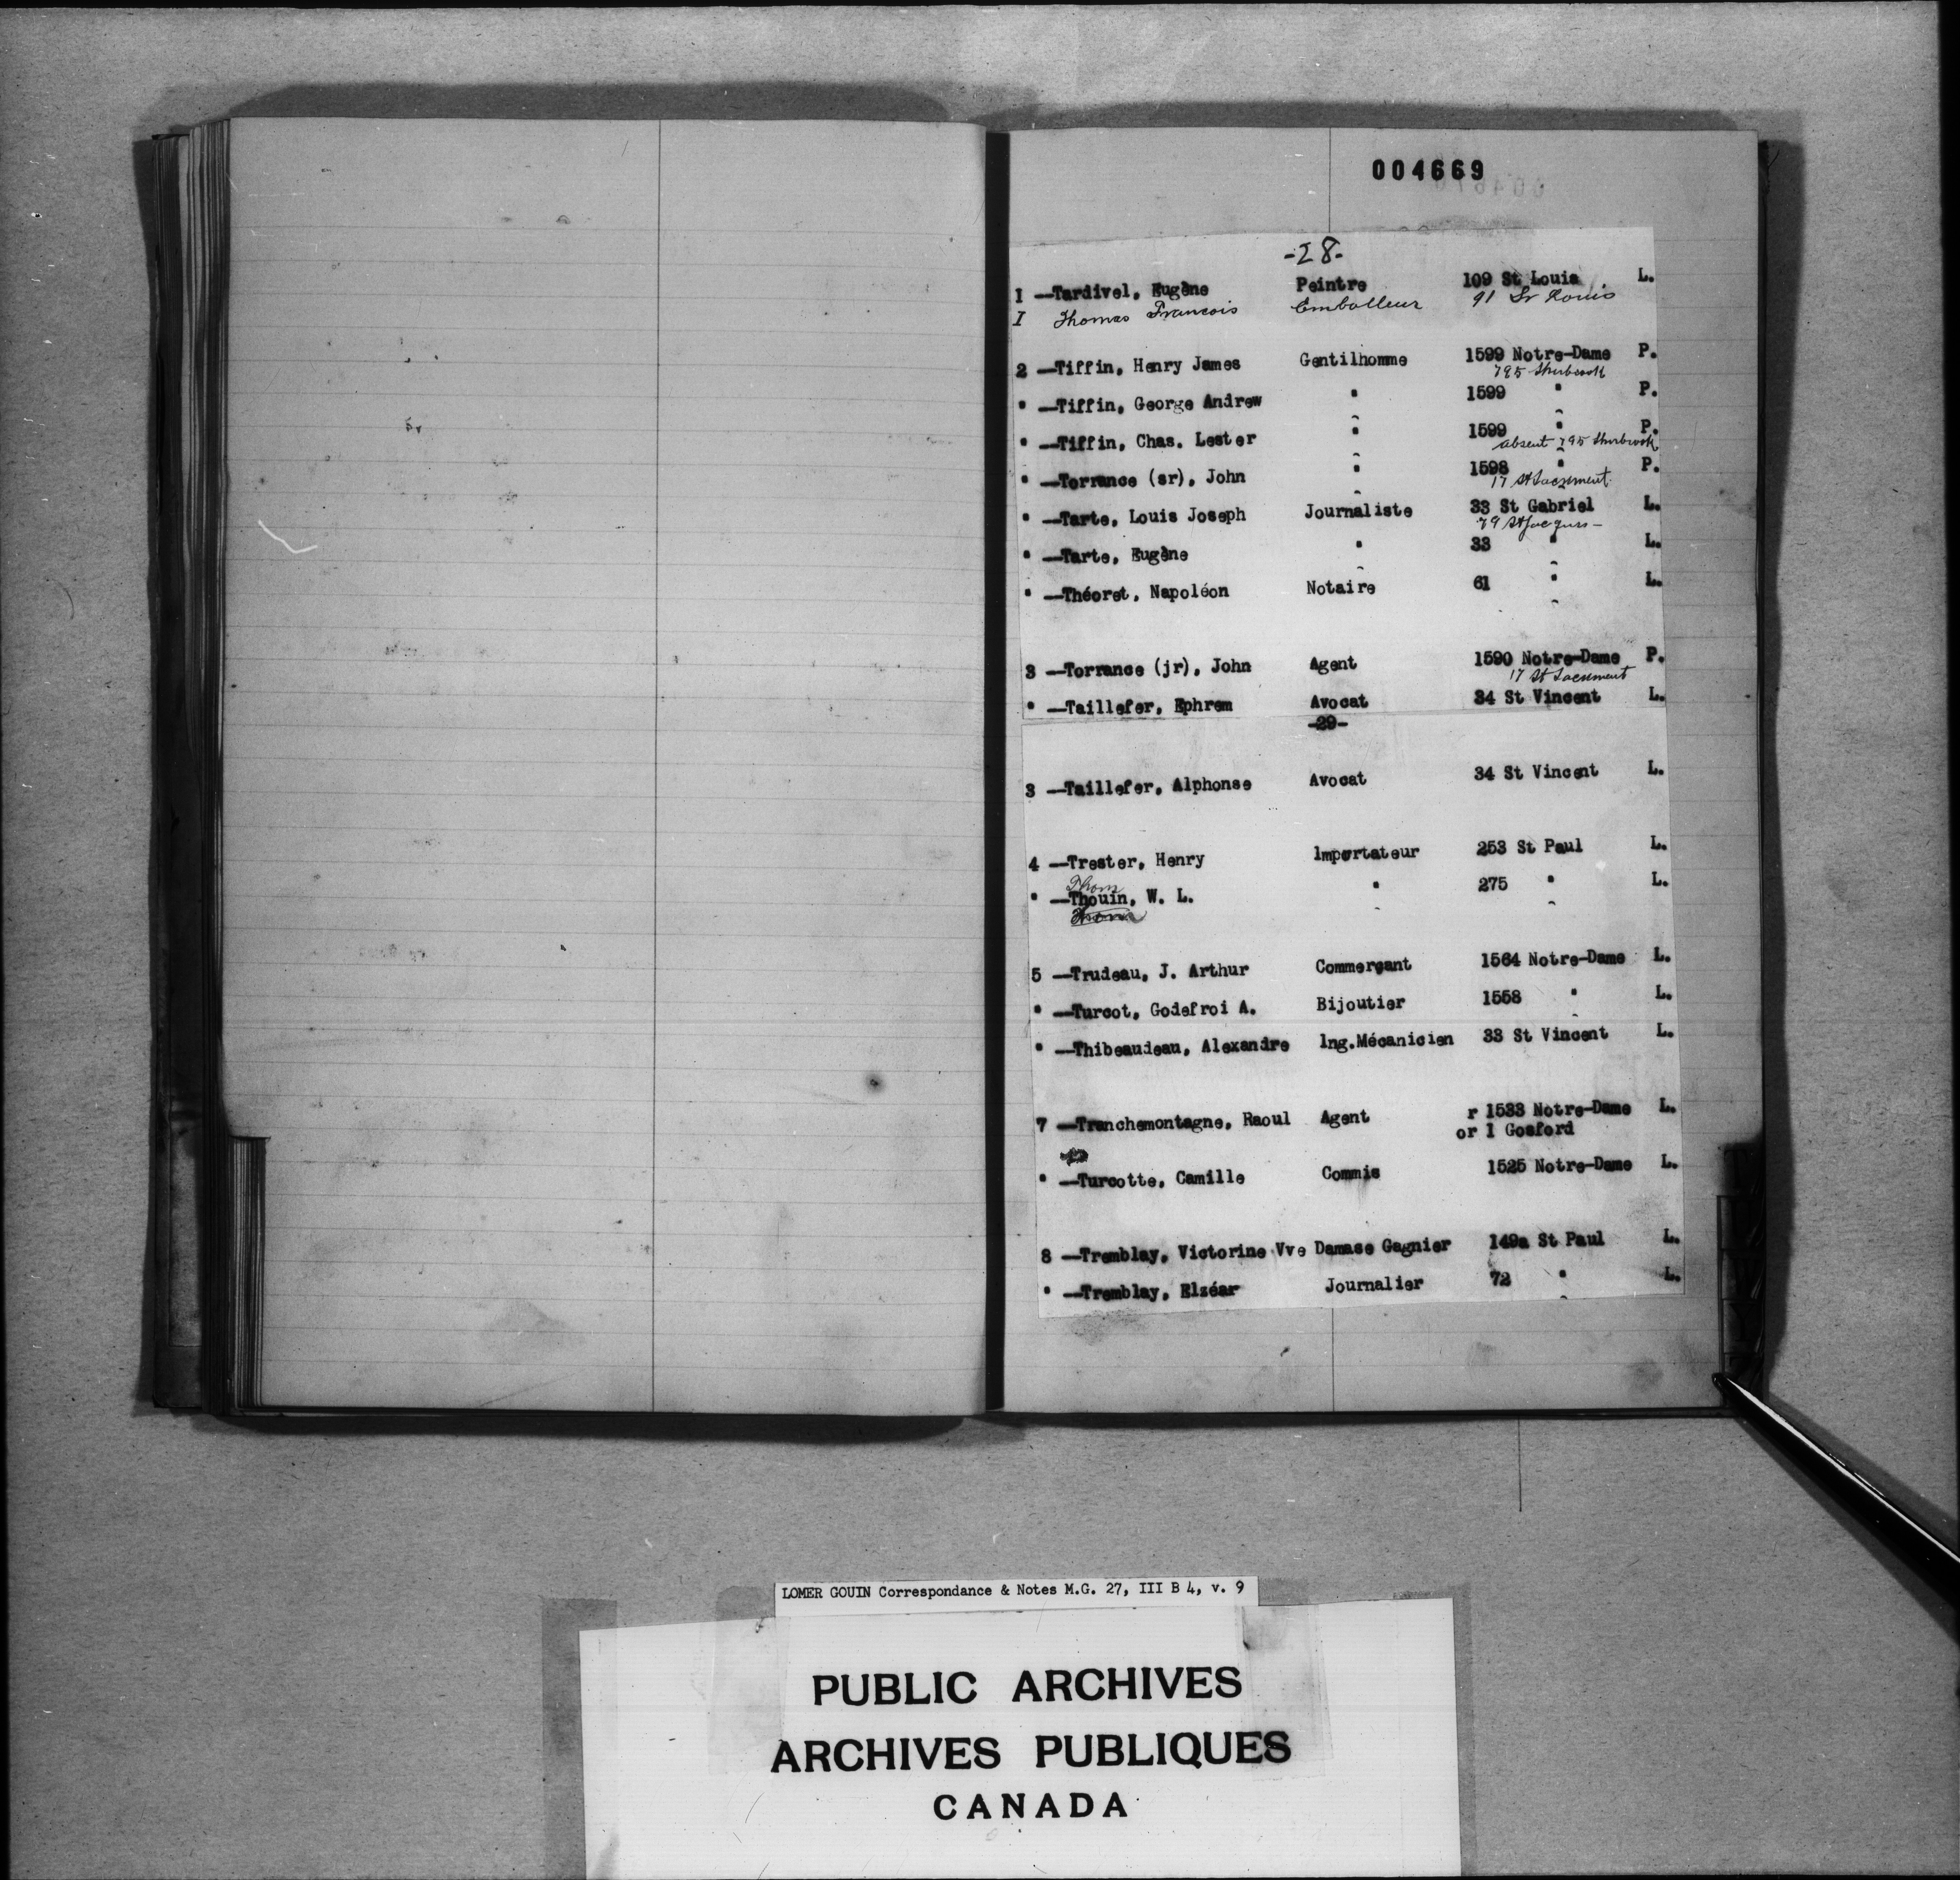 004669
-28-
1 —Tardivel, Eugène Peintre 109 St Louis L.
I Thomas Francois Emballeur 91 St Louis
2 —Tiffin, Henry James Gentilhomme 1599 Notre-Dame P.
795 Sherbrook
" —Tiffin, George Andrew " 1599 " P.
" —Tiffin, Chas. Lester " 1599 " P.
absent 795 Sherbrook
" —Torrance (sr), John " 1598 " P.
17 St Sacrement
" —Tarte, Louis Joseph Journaliste 33 St Gabriel L.
79 St Jacques —
" —Tarte, Eugène " 33 " L.
" —Théoret, Napoléon Notaire 61 " L.
3 —Torrance (jr), John Agent 1590 Notre-Dame P.
17 St Sacrement
" —Taillefer, Ephrem Avocat 34 St Vincent L.
-29-
3 —Taillefer, Alphonse Avocat 34 St Vincent L.
4 —Trester, Henry lmportateur 253 St Paul L.
Thom
" —Thouin, W. L. " 275 " L.
5 —Trudeau, J. Arthur Commerçant 1564 Notre-Dame L.
" —Turcot, Godefroi A. Bijoutier 1558 " L.
" —Thibeaudeau, Alexandre lng.Mécanicien 33 St Vincent L.
7 —Tranchemontagne, Raoul Agent r 1533 Notre-Dame L.
or 1 Gosford
" —Turcotte, Camille Commis 1525 Notre-Dame L.
8 —Tremblay, Victorine Vve Damase Gagnier 149a St Paul L.
" —Tremblay, Elzéar Journalier 72 " L.
LOMER GOUIN Correspondance & Notes M.G. 27, III B 4, v. 9
PUBLIC ARCHIVES
ARCHIVES PUBLIQUES
CANADA